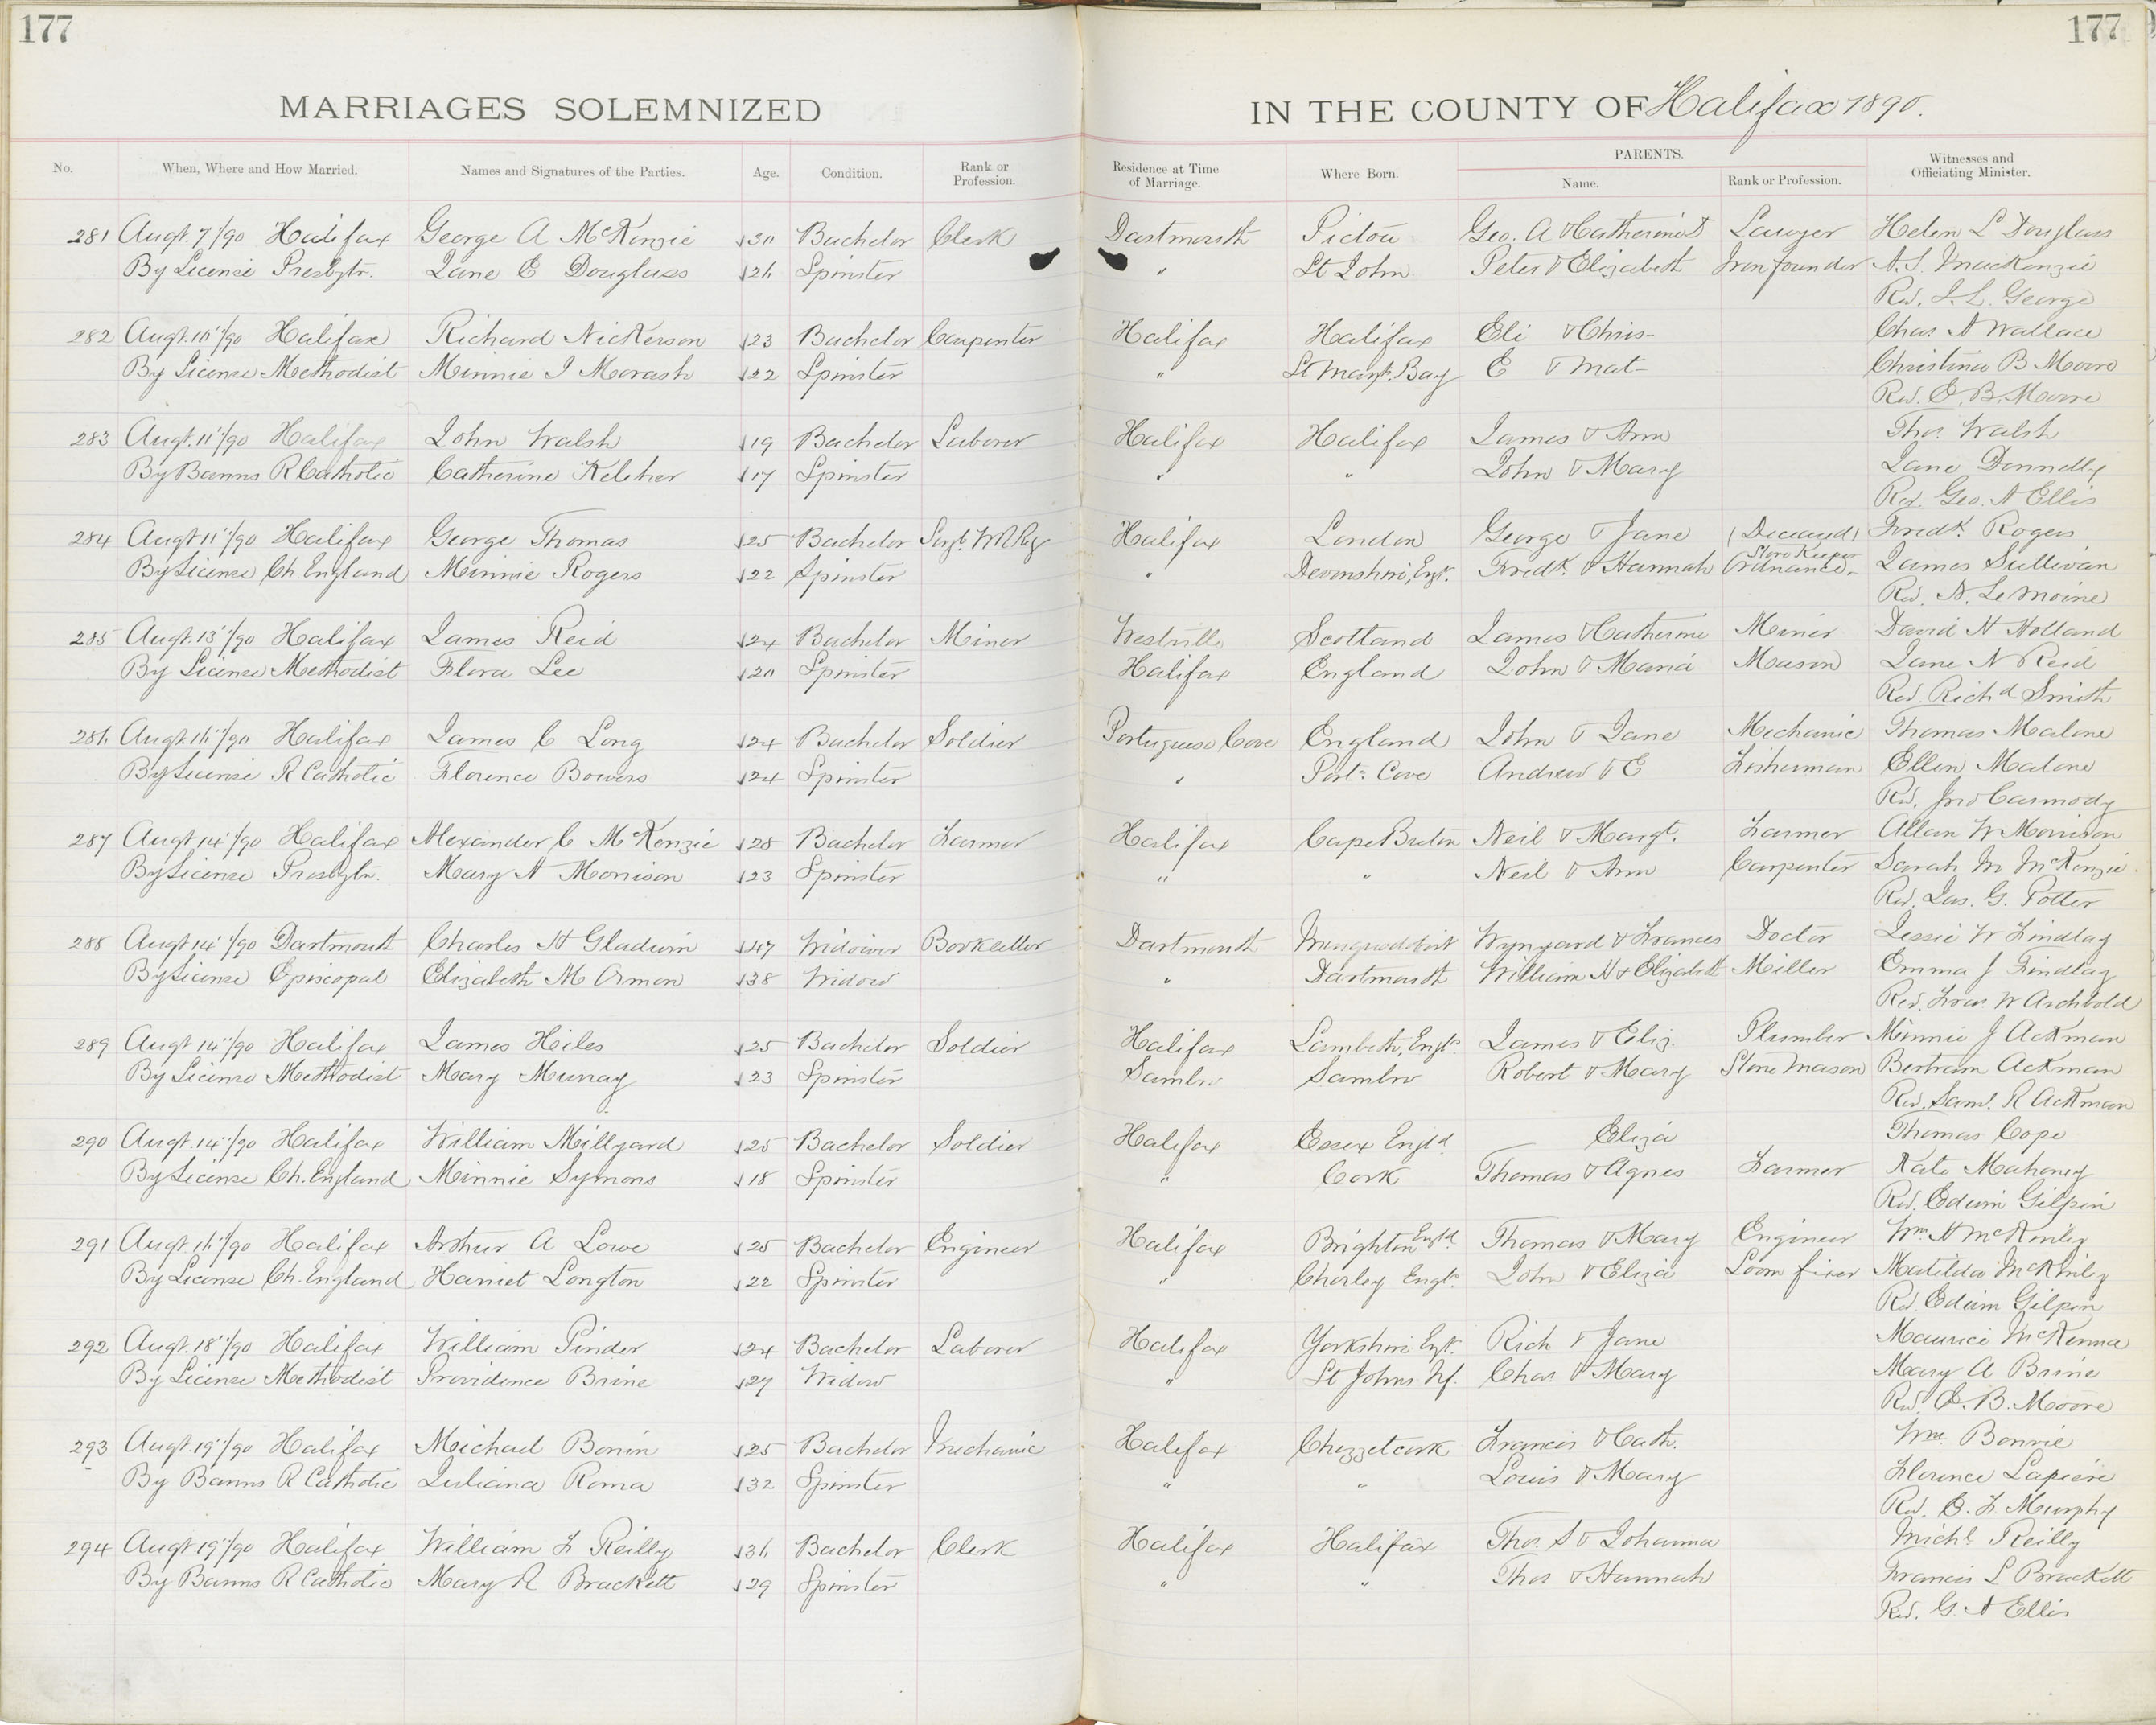 177
177
MARRIAGES SOLEMNIZED
IN THE COUNTY OF Halifax 1890.
No. When, Where and How Married. Names and Signatures of the Parties. Age. Condition. Rank or Profession. Residence at Time of Marriage. Where Born. PARENTS. Name. Rank or Profession. Witnesses and Officiating Minister.
281 Augt. 7/90 Halifax George A McKenzie 30 Bachelor Clerk Dartmouth Pictou Geo. A & Catherine Lawyer Helen L Douglass
By License Presbytr. Jane E Douglass 26 Spinster " St John Peter & Elizabeth Iron founder A. S. MacKenzie
Rev. J. L. George
282 Augt. 11"/90 Halifax Richard Nickerson 23 Bachelor Carpenter Halifax Halifax Eli & Chris- Chas A Wallace
By License Methodist Minnie I Morash 22 Spinster " St Margt. Bay E & Mat- Christina B Moore
Rev. E. B. Moore
283 Augt. 11"/90 Halifax John Walsh 19 Bachelor Laborer Halifax Halifax James & Ann Thos. Walsh
By Banns R Catholic Catherine Keleher 17 Spinster " " John & Mary Jane Donnelly
Rev. Geo. A Ellis
284 Augt 11"/90 Halifax George Thomas 25 Bachelor Sergt. W R Rg Halifax London George & Jane (Deceased) Fredk. Rogers
By License Ch. England Minnie Rogers 22 Spinster " Devonshire, Engd. Fredk. & Hannah Store Keeper Ordnance James Sullivan
Rev. A. Le Moine
285 Augt. 13"/90 Halifax James Reid 24 Bachelor Miner Westville Scotland James & Catherine Miner David H Holland
By License Methodist Flora Lee 20 Spinster Halifax England John & Maria Mason Jane N Reid
Rev. Richd Smith
286 Augt. 16"/90 Halifax James C Long 24 Bachelor Soldier Portuguese Cove England John & Jane Mechanic Thomas Malone
By License R Catholic Florence Bowers 24 Spinster " Port. Cove Andrew & E Fisherman Ellen Malone
Rev. Jno Carmody
287 Augt 14"/90 Halifax Alexander C McKenzie 28 Bachelor Farmer Halifax Cape Breton Neil & Margt. Farmer Allan W Morrison
By License Presbytr. Mary A Morrison 23 Spinster " " Neil & Ann Carpenter Sarah M McKenzie
Rev. Jas. G. Potter
288 Augt 14"/90 Dartmouth Charles H Gladwin 47 Widower Bookseller Dartmouth Musquodobit Wynyard & Frances Doctor Jessie W Findlay
By License Episcopal Elizabeth M Orman 38 Widow " Dartmouth William H & Elizabeth Miller Emma J Findlay
Rev. Fras. W Archbold
289 Augt 14"/90 Halifax James Hiles 25 Bachelor Soldier Halifax Lambeth, Engd. James & Eliz. Plumber Minnie J Ackman
By License Methodist Mary Murray 23 Spinster Sambro Sambro Robert & Mary Stone Mason Bertram Ackman
Rev. Saml. R Ackman
290 Augt. 14"/90 Halifax William Millyard 25 Bachelor Soldier Halifax Essex Engld. Eliza Thomas Cope
By License Ch. England Minnie Symons 18 Spinster " Cork Thomas & Agnes Farmer Kate Mahoney
Rev. Edwin Gilpin
291 Augt. 16"/90 Halifax Arthur A Lowe 25 Bachelor Engineer Halifax Brighton Engld. Thomas & Mary Engineer Wm. A McKinley
By License Ch. England Harriet Longton 22 Spinster " Chorley Engd. John & Eliza Loom fixer Matilda McKinley
Rev. Edwin Gilpin
292 Augt. 18"/90 Halifax William Pinder 24 Bachelor Laborer Halifax Yorkshire Engd. Rich & Jane Maurice McKenna
By License Methodist Providence Brine 27 Widow " St Johns Nf. Chas & Mary Mary A Brine
Rev. E. B. Moore
293 Augt. 19"/90 Halifax Michael Bonin 25 Bachelor Mechanic Halifax Chezzetcook Francis & Cath. Wm. Bonnie
By Banns R Catholic Juliana Roma 32 Spinster " " Louis & Mary Florence Lapiere
Rev. E. F. Murphy
294 Augt 19"/90 Halifax William F Reilly 36 Bachelor Clerk Halifax Halifax Thos. S & Johanna Michl. Reilly
By Banns R Catholic Mary R Brackett 29 Spinster " " Thos & Hannah Francis L Brackett
Rev. G. A Ellis